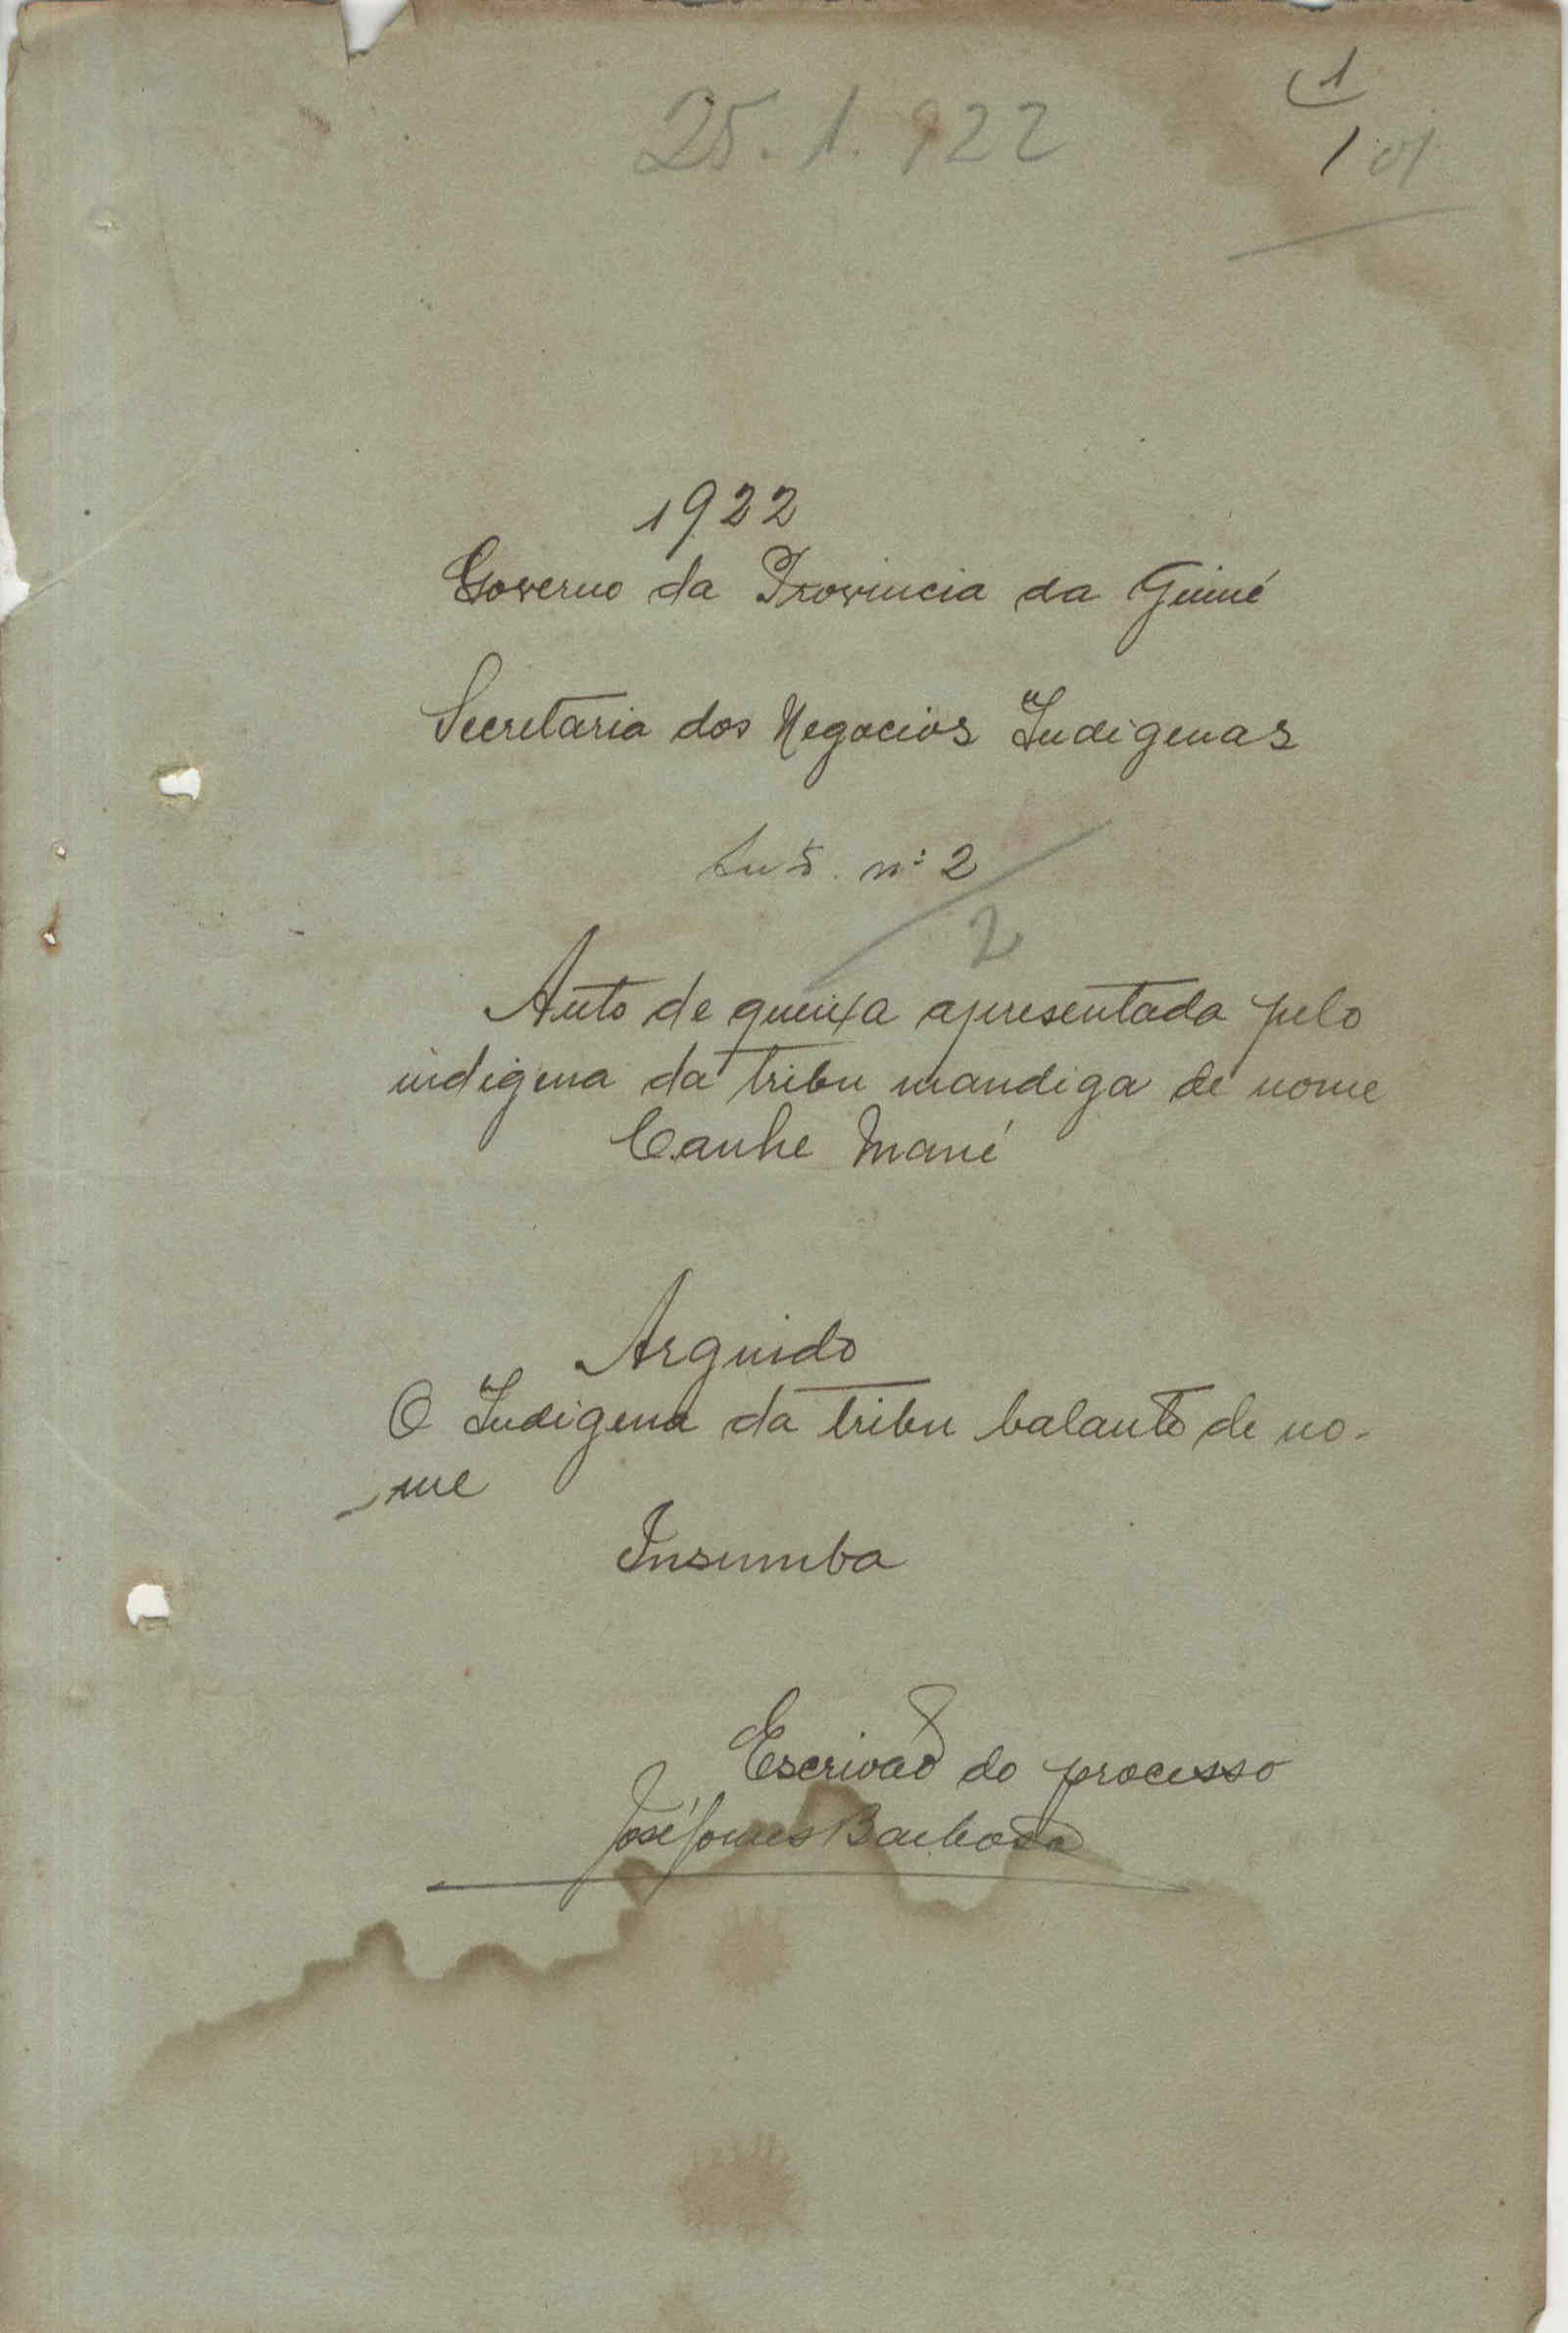 25.1.922
1
1
1922
Governo da Provincia da Guiné
Secretaria dos Negocios Indigenas
nº 2
2
Auto de queixa apresentada pelo
indigena da tribu mandiga de nome
Canhe Mané
Arguido
O Indigena da tribu balanta de no-
me
Insumba
Escrivaõ do processo
José Gomes Barbosa